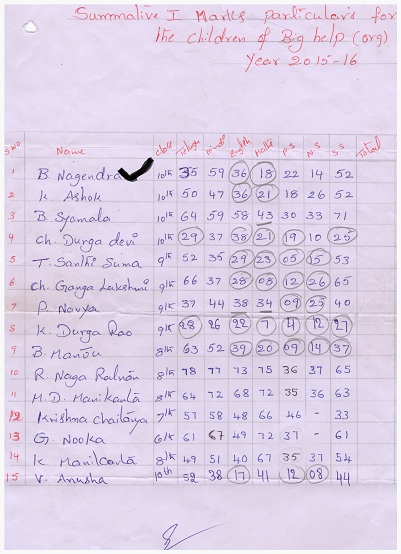 Summative I Marks particulars for
the children of Big help (org)
Year 2015-16
S.No Name class Telugu Hindi English Maths P.S N.S S.S Total
1 B Nagendra 10th 35 59 36 18 22 14 52
2 K. Ashok 10th 50 47 36 21 18 26 52
3 B. Syamala 10th 64 59 58 43 30 33 71
4 Ch. Durga devi 10th 29 37 38 21 19 10 25
5 T. Santhi Suma 9th 52 35 29 23 05 15 53
6 Ch. Ganga Lakshmi 9th 66 37 28 08 12 26 65
7 P. Navya 9th 37 44 38 34 09 25 40
8 K. Durga Rao 9th 28 26 22 7 4 12 27
9 B. Manöu 8th 63 52 39 20 09 14 37
10 R. Naga 8th 78 77 73 75 36 37 65
11 M.D. Manikanta 8th 64 72 68 72 35 36 63
12 Krishna Chaitanya 7th 57 58 48 66 46 - 33
13 G. Nooka 6th 61 67 49 72 37 - 61
14 K. Manikanta 8th 49 51 40 67 35 37 54
15 V. Anusha 10th 52 38 17 41 12 08 44